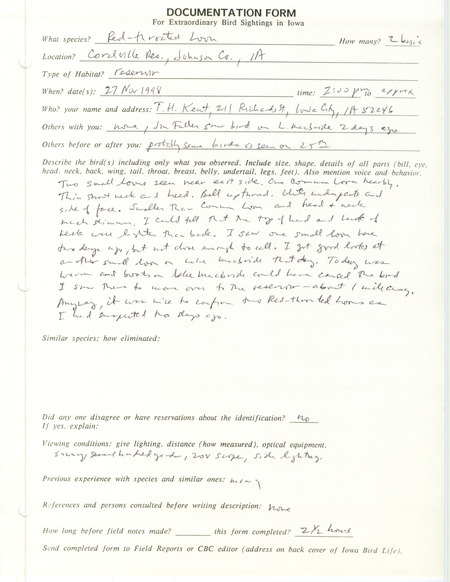 DOCUMENTATION FORM
For Extraordinary Bird Sightings in Iowa
What species? Red-throated Loon How many? 2 basic
Location? Coralville Res., Johnson Co., IA
Type of Habitat? reservoir
When? date(s): 27 Nov 1998 time: 2:00 pm to approx
Who? your name and address: T.H. Kent, 211 Richards St, Iowa City, IA 52246
Others with you: none, Jim Fuller saw bird on L. Macbride 2 days ago
Others before or after you: probably same birds as seen on 25th
Describe the bird(s) including only what you observed. Include size, shape, details of all parts (bill, eye,
head, neck, back, wing, tail, throat, breast, belly, undertail, legs, feet). Also mention voice and behavior.
Two small loons seen near east side. One Common Loon nearby.
Thin straight neck and head. Bill upturned. White underparts and
side of face. Smaller than Common Loon and head & neck
much slimmer. I could tell that the top of head and back of
neck were lighter than back. I saw one small loon here
two days ago, but not close enough to call. I got good looks at
another small loon on Lake Macbride that day. Today was
warm and boats on Lake Macbride could have caused the bird
I saw there to move over to the reservoir - about 1 mile away.
Anyway, it was nice to confirm two Red-throated Loons as
I had suspected two days ago.
Similar species; how eliminated:
Did any one disagree or have reservations about the identification? no
If yes, explain:
Viewing conditions: give lighting, distance (how measured), optical equipment.
sunny, several hundred yards, 20X scope, side lighting.
Previous experience with species and similar ones: many
References and persons consulted before writing description: none
How long before field notes made? this form completed? 2 1/2 hours
Send completed form to Field Reports or CBC editor (address on back cover of Iowa Bird Life).